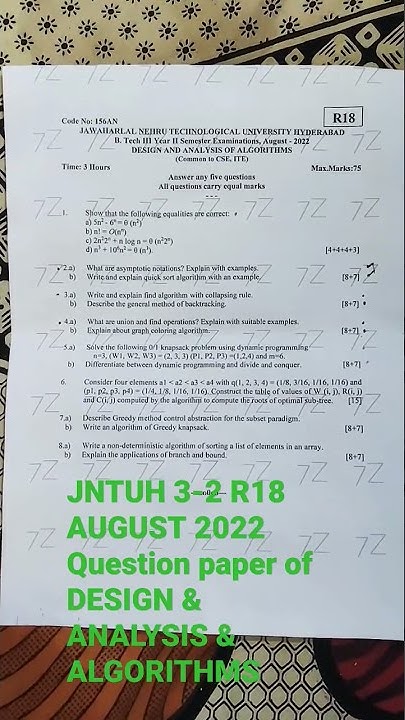 R18
Code No: 156AN
JAWAHARLAL NEHRU TECHNOLOGICAL UNIVERSITY HYDERABAD
B. Tech III Year II Semester Examinations, August - 2022
DESIGN AND ANALYSIS OF ALGORITHMS
(Common to CSE, ITE)
Time: 3 Hours Max.Marks:75
Answer any five questions
All questions carry equal marks
---
1. Show that the following equalities are correct:
a) 5n² - 6ⁿ = θ (n²)
b) n! = O(nⁿ)
c) 2n²2ⁿ + n log n = θ (n²2ⁿ)
d) n³ + 10⁶n² = θ (n³). [4+4+4+3]
2.a) What are asymptotic notations? Explain with examples.
b) Write and explain quick sort algorithm with an example. [8+7]
3.a) Write and explain find algorithm with collapsing rule.
b) Describe the general method of backtracking. [8+7]
4.a) What are union and find operations? Explain with suitable examples.
b) Explain about graph coloring algorithm. [8+7]
5.a) Solve the following 0/1 knapsack problem using dynamic programming
n=3, (W1, W2, W3) = (2, 3, 3) (P1, P2, P3) =(1,2,4) and m=6.
b) Differentiate between dynamic programming and divide and conquer. [8+7]
6. Consider four elements a1 < a2 < a3 < a4 with q(1, 2, 3, 4) = (1/8, 3/16, 1/16, 1/16) and
(p1, p2, p3, p4) = (1/4, 1/8, 1/16, 1/16). Construct the table of values of W (i, j), R(i, j)
and C(i, j) computed by the algorithm to compute the roots of optimal sub-tree. [15]
7.a) Describe Greedy method control abstraction for the subset paradigm.
b) Write an algorithm of Greedy knapsack. [8+7]
8.a) Write a non-deterministic algorithm of sorting a list of elements in an array.
b) Explain the applications of branch and bound. [8+7]
---oo0oo---
JNTUH 3-2 R18
AUGUST 2022
Question paper of
DESIGN &
ANALYSIS &
ALGORITHMS